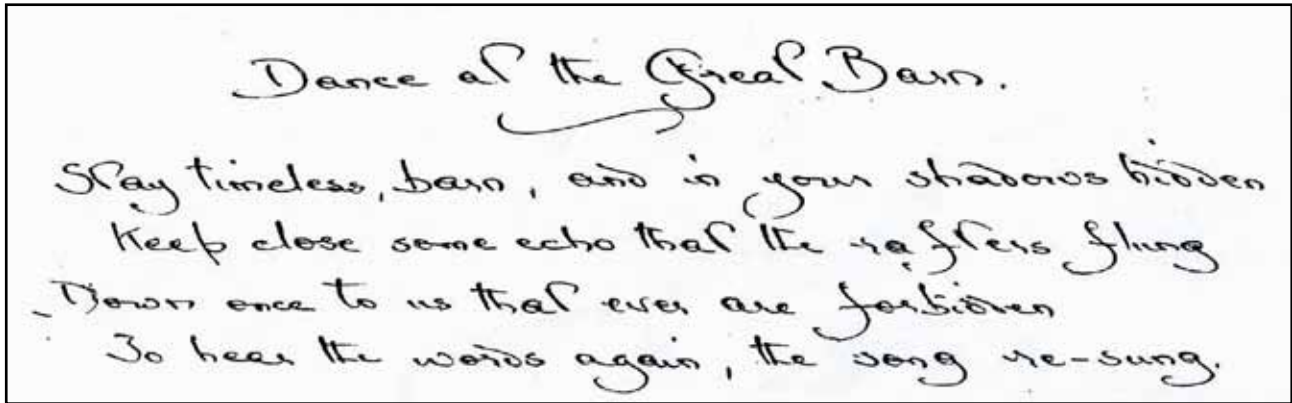 Dance at the Great Barn.
Stay timeless, barn, and in your shadows hidden
Keep close some echo that the rafters flung
Down once to us that ever are forbidden
To hear the words again, the song re-sung.